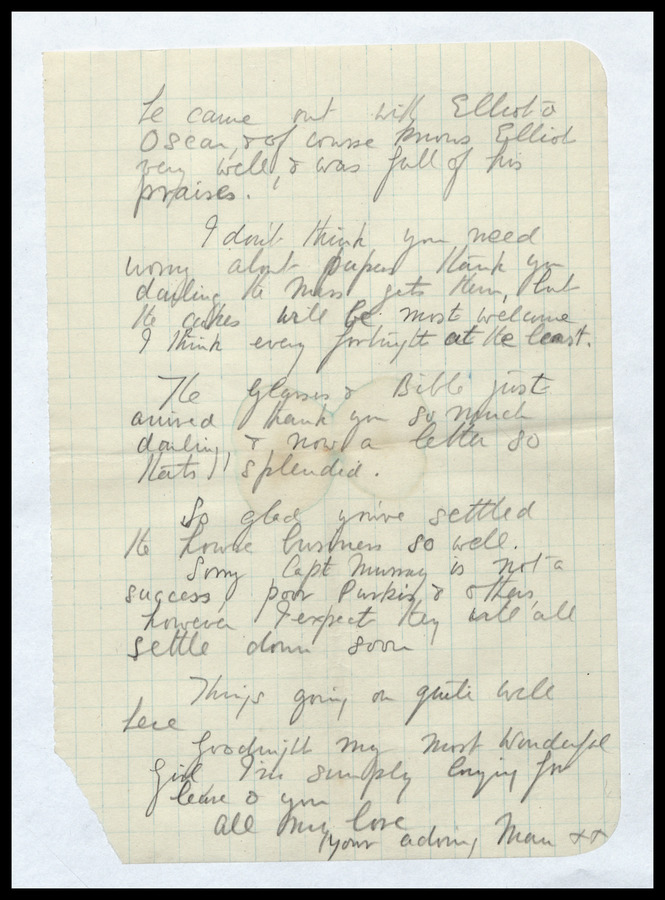 He came out with Elliot &
Oscar, & of course knows Elliot
very well, & was full of his
praises.
I don't think you need
worry about papers thank you
darling the mess gets them, but
the cakes will be most welcome
I think every fortnight at the least.
The glasses & Bible just
arrived thank you so much
darling, & now a letter so
thats splendid.
So glad you've settled
the house business so well.
Sorry Capt Murray is not a
success, poor Parkin & others,
however I expect they will all
settle down soon
Things going on quite well
here
Goodnight my most wonderful
girl I'm simply longing for
leave & you
all my love
your adoring Man xx